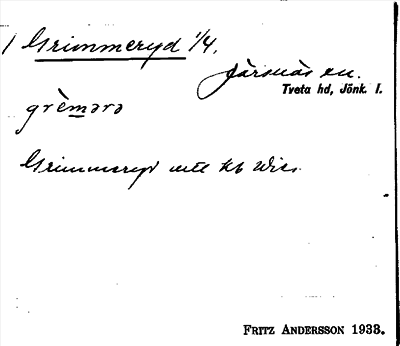 1 Grimmeryd 1/4.
Järsnäs sn.
Tveta hd, Jönk. l.
grèmərə
Grimmeryd mtl kb
FRITZ ANDERSSON 1933.